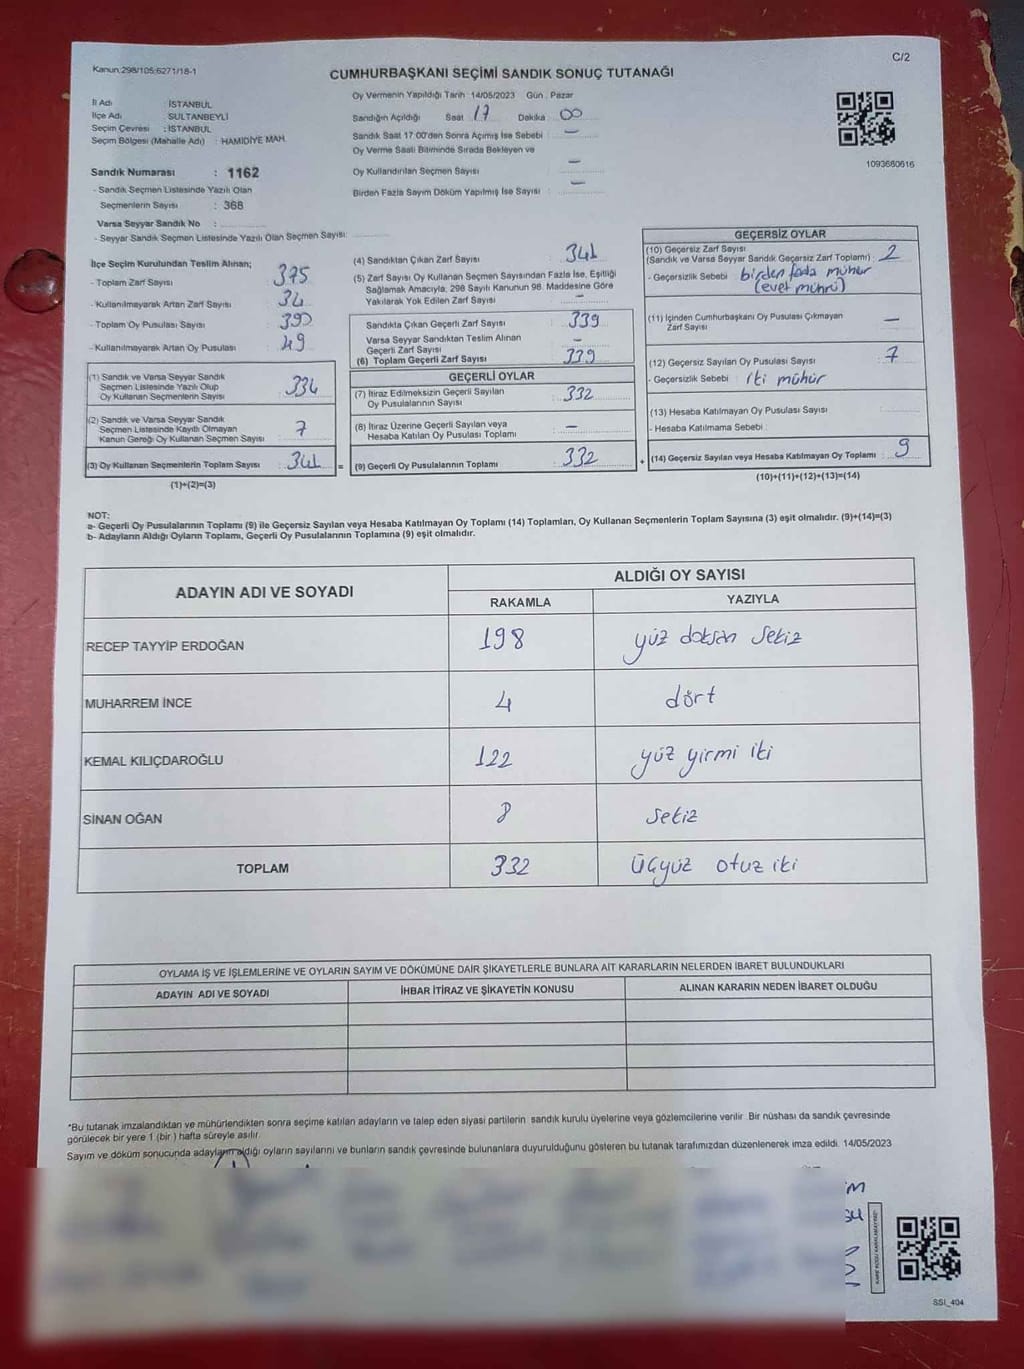 Kanun:298/105;6271/18-1
C/2
CUMHURBAŞKANI SEÇİMİ SANDIK SONUÇ TUTANAĞI
İl Adı : İSTANBUL
İlçe Adı : SULTANBEYLİ
Seçim Çevresi : İSTANBUL
Seçim Bölgesi (Mahalle Adı) : HAMİDİYE MAH.
Sandık Numarası : 1162
- Sandık Seçmen Listesinde Yazılı Olan
Seçmenlerin Sayısı : 368
Varsa Seyyar Sandık No :
- Seyyar Sandık Seçmen Listesinde Yazılı Olan Seçmen Sayısı:
Oy Vermenin Yapıldığı Tarih : 14/05/2023 Gün : Pazar
Sandığın Açıldığı Saat : 17 Dakika : 00
Sandık Saat 17:00'den Sonra Açılmış İse Sebebi : —
Oy Verme Saati Bitiminde Sırada Bekleyen ve
Oy Kullandırılan Seçmen Sayısı : —
Birden Fazla Sayım Döküm Yapılmış İse Sayısı : —
1093680616
İlçe Seçim Kurulundan Teslim Alınan;
- Toplam Zarf Sayısı : 375
- Kullanılmayarak Artan Zarf Sayısı : 34
- Toplam Oy Pusulası Sayısı : 390
- Kullanılmayarak Artan Oy Pusulası : 49
(1) Sandık ve Varsa Seyyar Sandık
Seçmen Listesinde Yazılı Olup
Oy Kullanan Seçmenlerin Sayısı : 334
(2) Sandık ve Varsa Seyyar Sandık
Seçmen Listesinde Kayıtlı Olmayan
Kanun Gereği Oy Kullanan Seçmen Sayısı : 7
(3) Oy Kullanan Seçmenlerin Toplam Sayısı : 341
(1)+(2)=(3)
(4) Sandıktan Çıkan Zarf Sayısı : 341
(5) Zarf Sayısı Oy Kullanan Seçmen Sayısından Fazla İse, Eşitliği
Sağlamak Amacıyla, 298 Sayılı Kanunun 98. Maddesine Göre
Yakılarak Yok Edilen Zarf Sayısı : —
Sandıkta Çıkan Geçerli Zarf Sayısı : 339
Varsa Seyyar Sandıktan Teslim Alınan
Geçerli Zarf Sayısı : —
(6) Toplam Geçerli Zarf Sayısı : 339
GEÇERLİ OYLAR
(7) İtiraz Edilmeksizin Geçerli Sayılan
Oy Pusulalarının Sayısı : 332
(8) İtiraz Üzerine Geçerli Sayılan veya
Hesaba Katılan Oy Pusulası Toplamı : —
= (9) Geçerli Oy Pusulalarının Toplamı : 332 +
GEÇERSİZ OYLAR
(10) Geçersiz Zarf Sayısı
(Sandık ve Varsa Seyyar Sandık Geçersiz Zarf Toplamı) : 2
- Geçersizlik Sebebi : birden fazla mühür
(evet mührü)
(11) İçinden Cumhurbaşkanı Oy Pusulası Çıkmayan
Zarf Sayısı : —
(12) Geçersiz Sayılan Oy Pusulası Sayısı : 7
- Geçersizlik Sebebi : iki mühür
(13) Hesaba Katılmayan Oy Pusulası Sayısı :
- Hesaba Katılmama Sebebi :
(14) Geçersiz Sayılan veya Hesaba Katılmayan Oy Toplamı : 9
(10)+(11)+(12)+(13)=(14)
NOT:
a- Geçerli Oy Pusulalarının Toplamı (9) ile Geçersiz Sayılan veya Hesaba Katılmayan Oy Toplamı (14) Toplamları, Oy Kullanan Seçmenlerin Toplam Sayısına (3) eşit olmalıdır. (9)+(14)=(3)
b- Adayların Aldığı Oyların Toplamı, Geçerli Oy Pusulalarının Toplamına (9) eşit olmalıdır.
ADAYIN ADI VE SOYADI
ALDIĞI OY SAYISI
RAKAMLA YAZIYLA
RECEP TAYYİP ERDOĞAN 198 yüz doksan sekiz
MUHARREM İNCE 4 dört
KEMAL KILIÇDAROĞLU 122 yüz yirmi iki
SİNAN OĞAN 8 sekiz
TOPLAM 332 üçyüz otuz iki
OYLAMA İŞ VE İŞLEMLERİNE VE OYLARIN SAYIM VE DÖKÜMÜNE DAİR ŞİKAYETLERLE BUNLARA AİT KARARLARIN NELERDEN İBARET BULUNDUKLARI
ADAYIN ADI VE SOYADI İHBAR İTİRAZ VE ŞİKAYETİN KONUSU ALINAN KARARIN NEDEN İBARET OLDUĞU
*Bu tutanak imzalandıktan ve mühürlendikten sonra seçime katılan adayların ve talep eden siyasi partilerin sandık kurulu üyelerine veya gözlemcilerine verilir. Bir nüshası da sandık çevresinde
görülecek bir yere 1 (bir) hafta süreyle asılır.
Sayım ve döküm sonucunda adayların aldığı oyların sayılarını ve bunların sandık çevresinde bulunanlara duyurulduğunu gösteren bu tutanak tarafımızdan düzenlenerek imza edildi. 14/05/2023
SSI_404